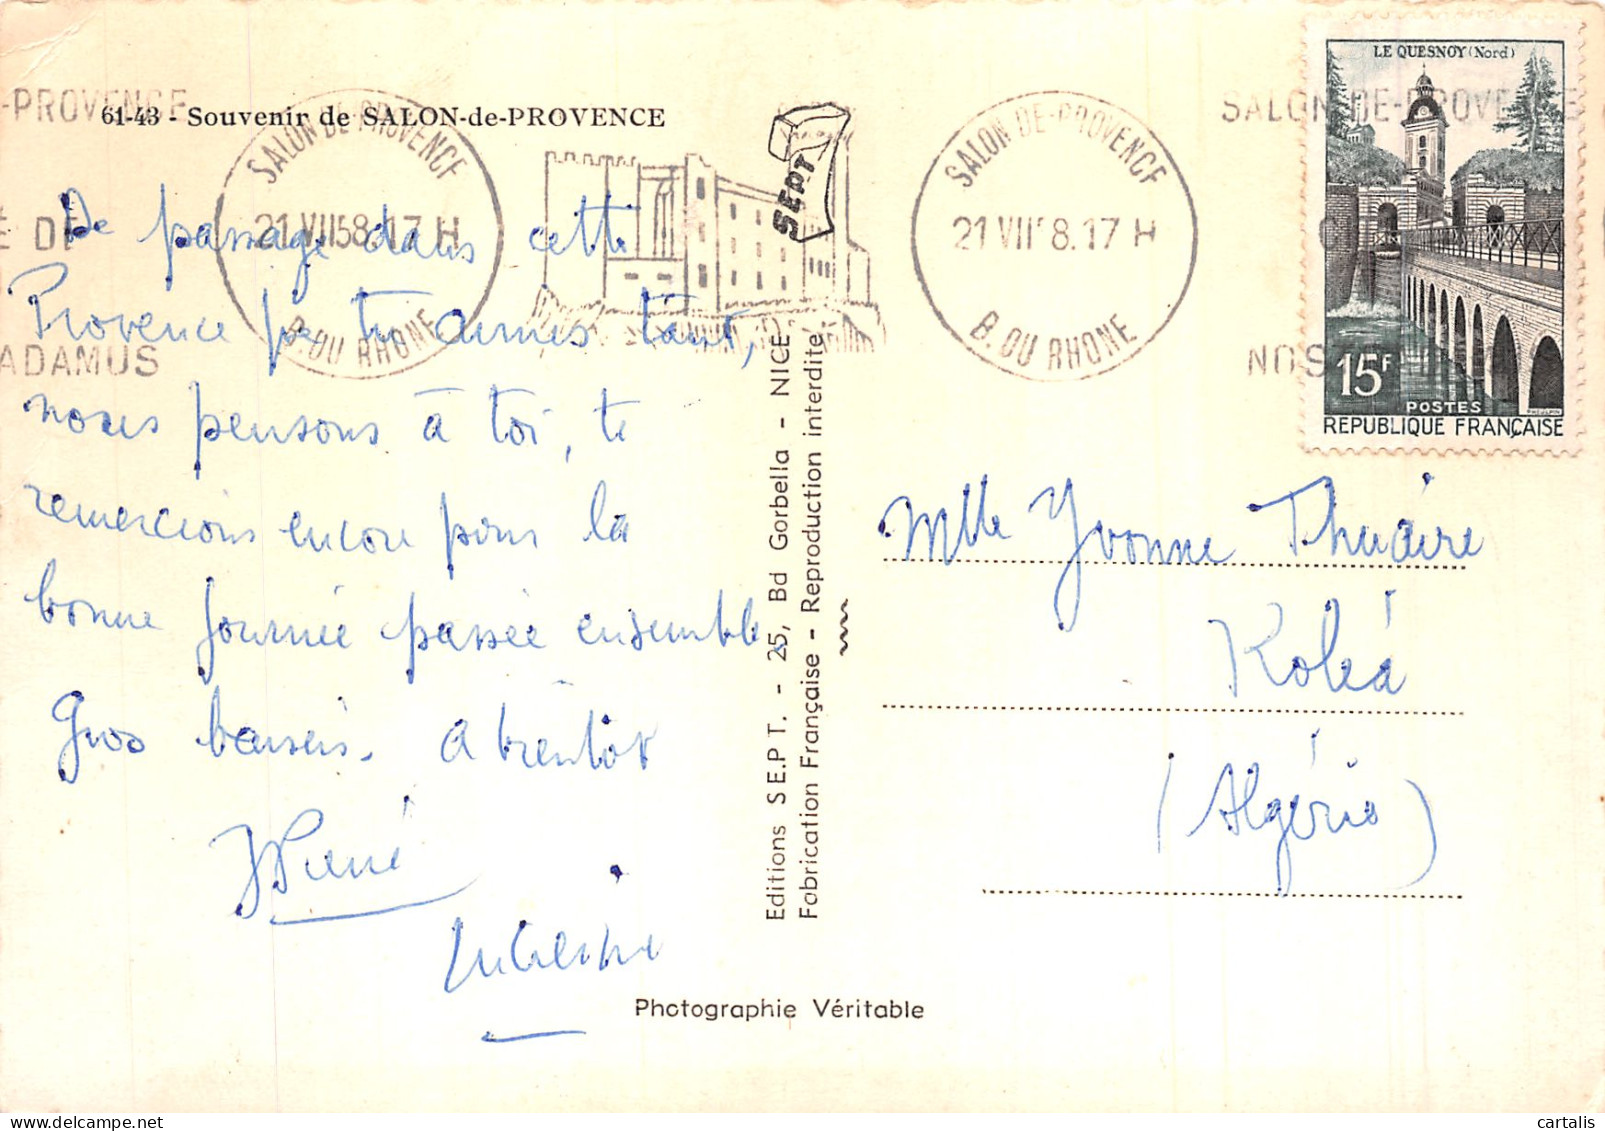 61-43 - Souvenir de SALON-de-PROVENCE
-PROVENCE
É DE
ADAMUS
SALON DE-PROVENCE
21 VII58.17 H
B. DU RHONE
SEPT
SALON DE-PROVENCE
21 VII 8.17 H
B. DU RHONE
SALON-DE-PROVENCE
NOS
LE QUESNOY (Nord)
15F
POSTES
REPUBLIQUE FRANÇAISE
De passage dans cette
Provence que tu aimes tant,
nous pensons à toi, te
remercions encore pour la
bonne journée passée ensemble
Gros baisers. A bientôt
Editions S.E.P.T. - 25, Bd Gorbella - NICE
Fabrication Française - Reproduction interdite
Mlle Yvonne Thuaire
Koléa
(Algérie)
Photographie Véritable
cartalis